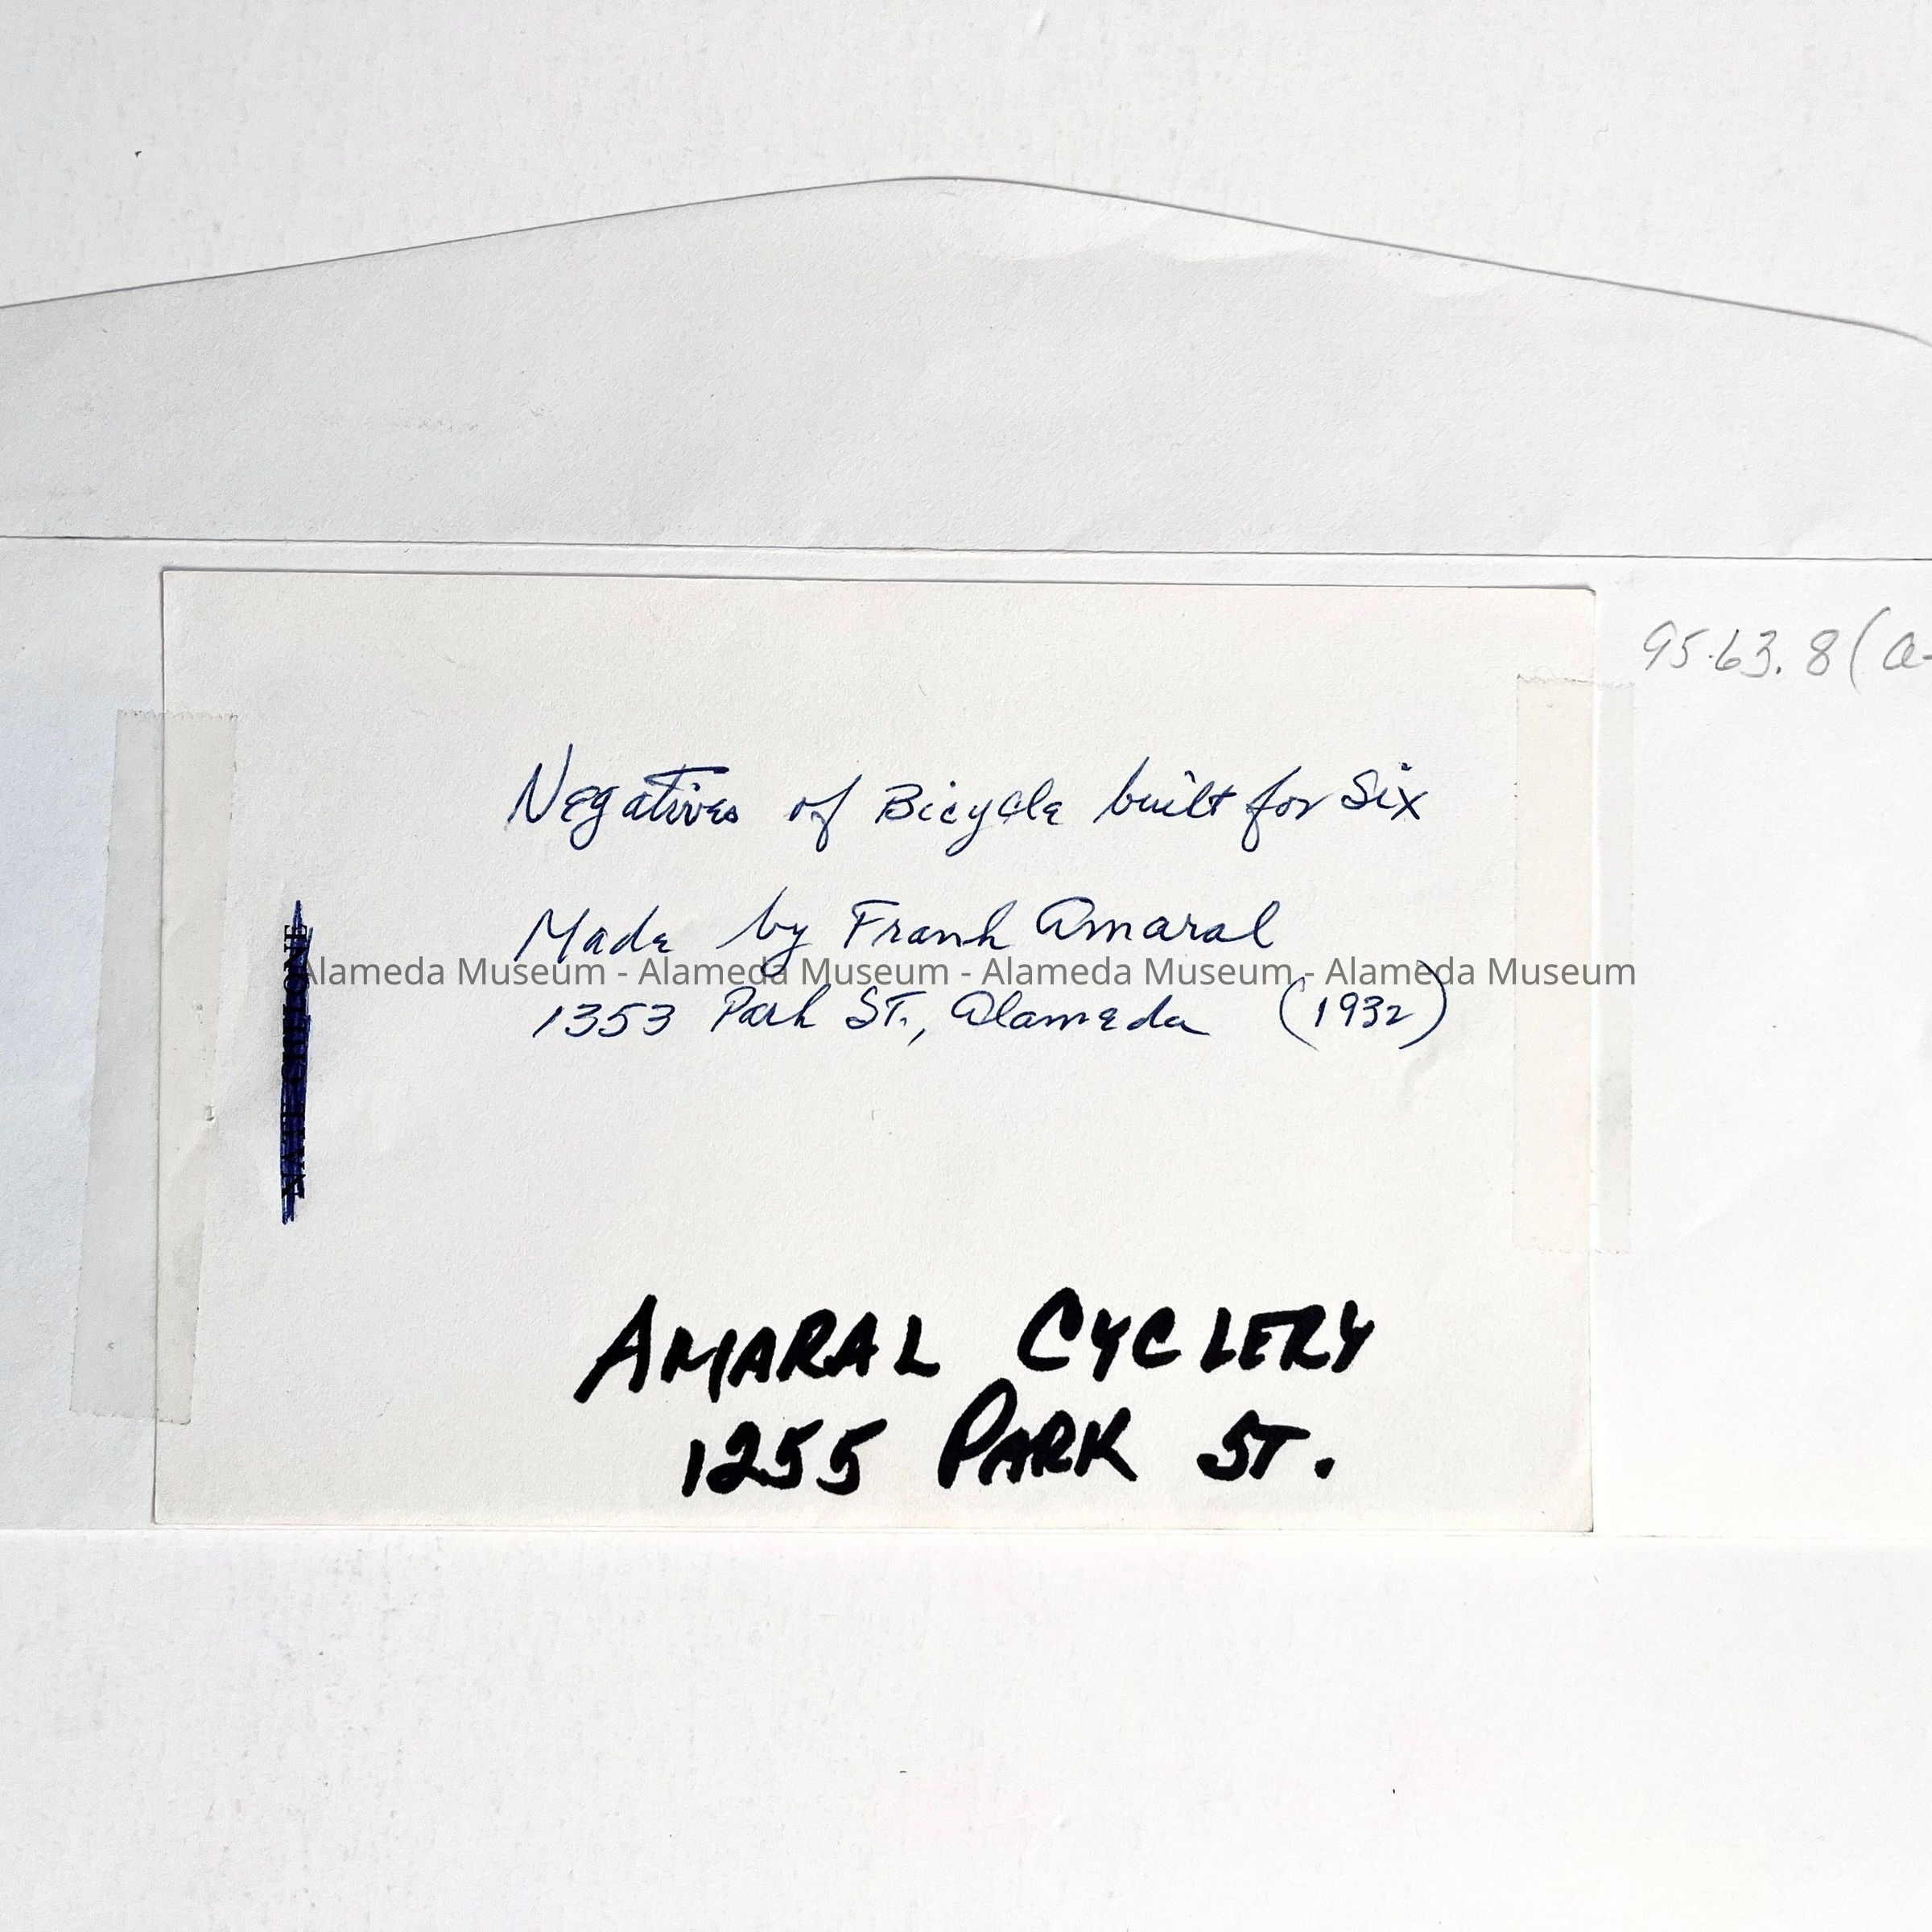 95.63.8 (a-
Negatives of Bicycle built for Six
Made by Frank Amaral
Alameda Museum - Alameda Museum - Alameda Museum - Alameda Museum
1353 Park ST., Alameda (1932)
AMARAL CYCLERY
1255 PARK ST.